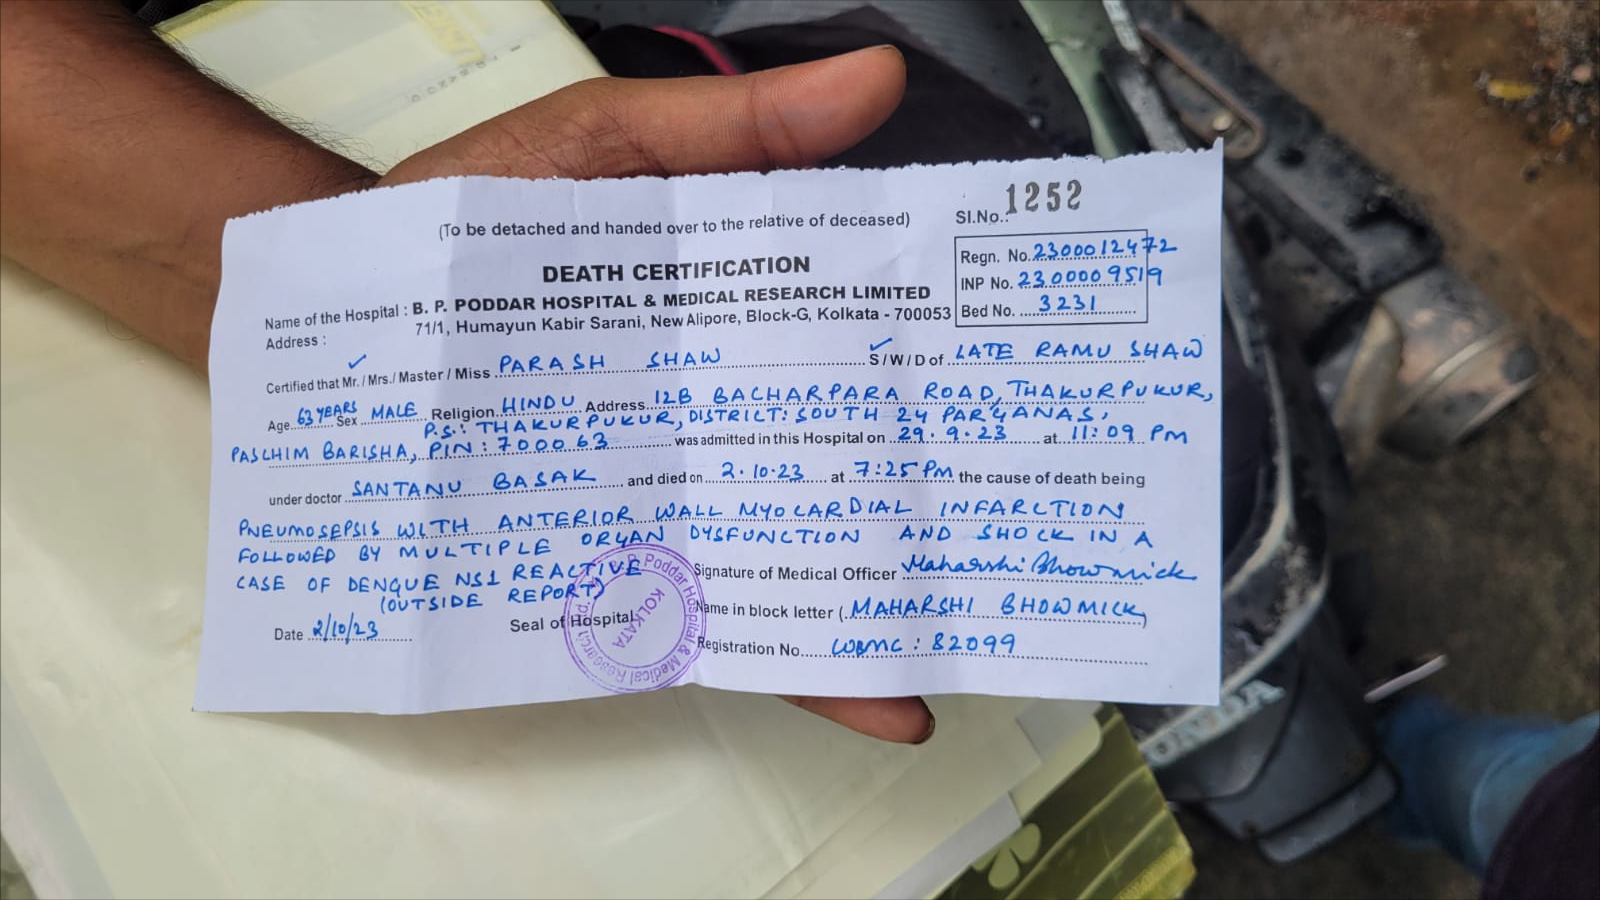 (To be detached and handed over to the relative of deceased)
Sl.No.: 1252
DEATH CERTIFICATION
Regn. No. 2300012472
INP No. 230009519
Bed No. 3231
Name of the Hospital : B. P. PODDAR HOSPITAL & MEDICAL RESEARCH LIMITED
Address : 71/1, Humayun Kabir Sarani, New Alipore, Block-G, Kolkata - 700053
Certified that Mr. / Mrs./ Master / Miss PARASH SHAW S / W / D of LATE RAMU SHAW
Age 63 YEARS Sex MALE Religion HINDU Address 12B BACHARPARA ROAD, THAKURPUKUR,
P.S.: THAKURPUKUR, DISTRICT: SOUTH 24 PARGANAS,
PASCHIM BARISHA, PIN: 700063 was admitted in this Hospital on 29.9.23 at 11:09 PM
under doctor SANTANU BASAK and died on 2.10.23 at 7:25 PM the cause of death being
PNEUMOSEPSIS WITH ANTERIOR WALL MYOCARDIAL INFARCTION
FOLLOWED BY MULTIPLE ORGAN DYSFUNCTION AND SHOCK IN A
CASE OF DENGUE NS1 REACTIVE
(OUTSIDE REPORT)
Signature of Medical Officer Maharshi Bhowmick
Name in block letter ( MAHARSHI BHOWMICK )
Date 2/10/23 Seal of Hospital
Registration No. WBMC : 82099
B. P. Poddar Hospital & Medical Research Ltd.
KOLKATA
HONDA